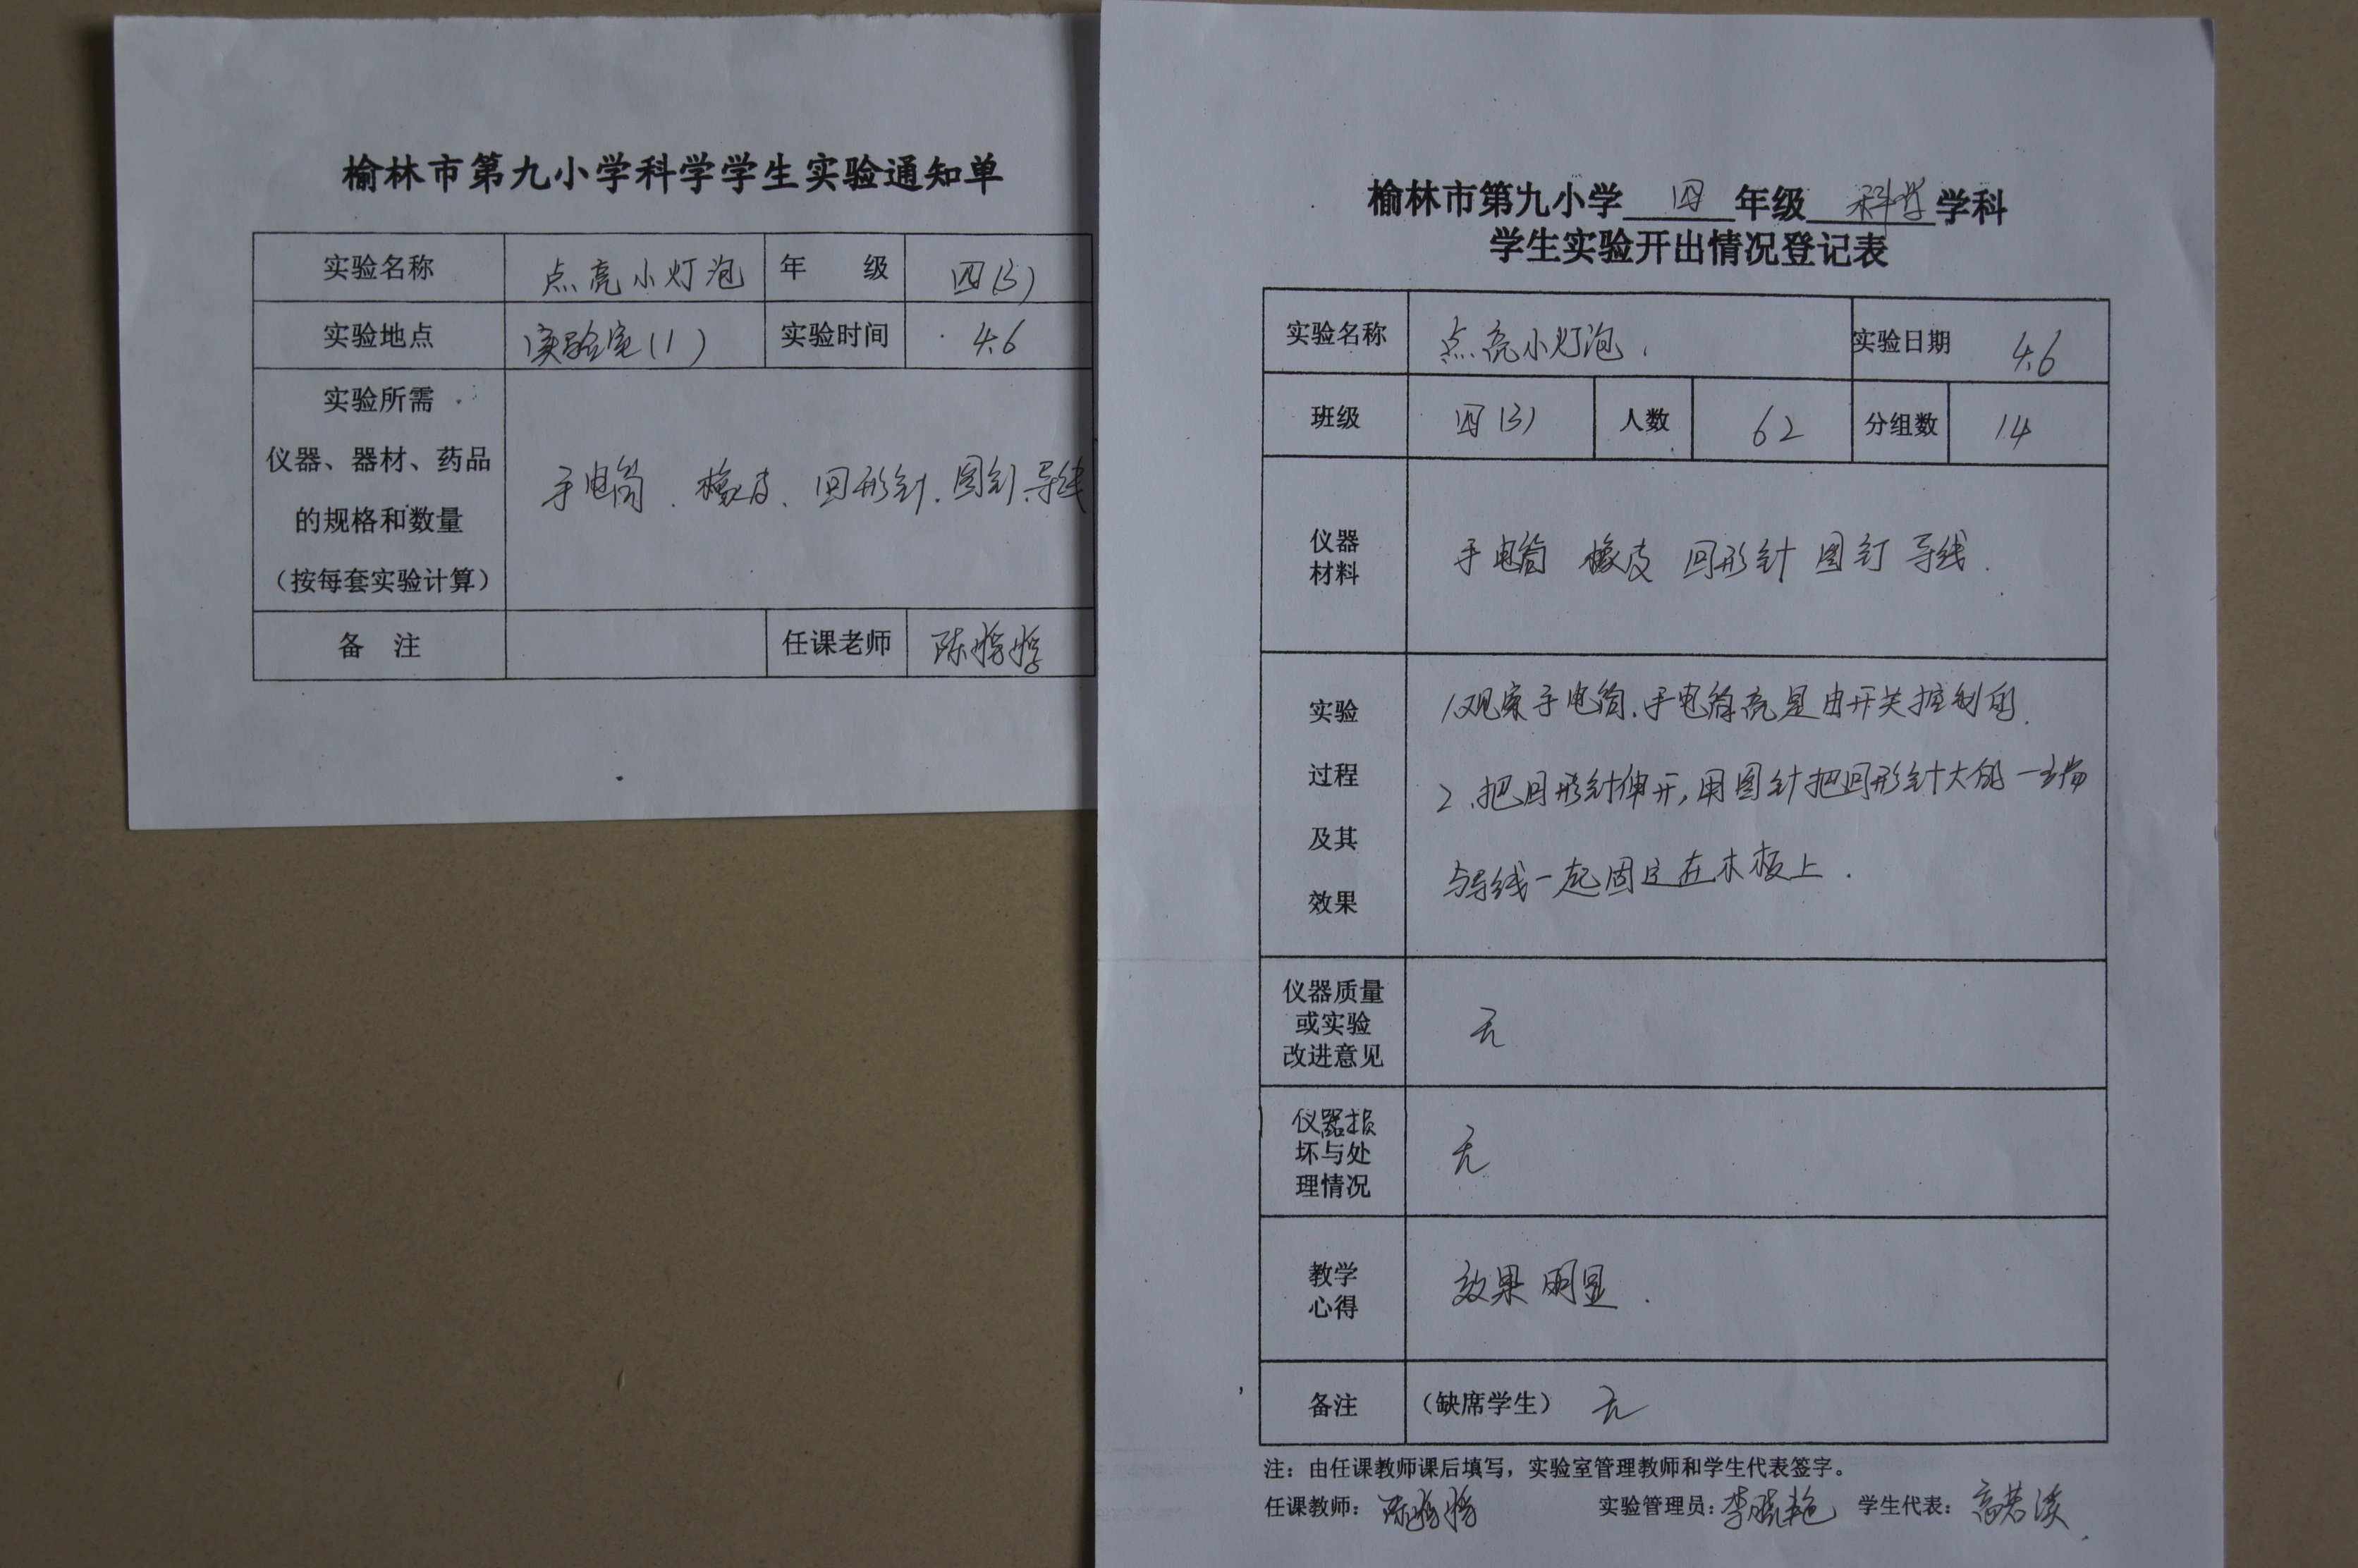 榆林市第九小学科学学生实验通知单
实验名称 点亮小灯泡 年 级 四(3)
实验地点 实验室(1) 实验时间 4.6
实验所需
仪器、器材、药品
的规格和数量
(按每套实验计算)
手电筒、橡皮、回形针、图钉、导线
备 注 任课老师 陈婷婷
榆林市第九小学 四 年级 科学 学科
学生实验开出情况登记表
实验名称 点亮小灯泡. 实验日期 4.6
班级 四(3) 人数 62 分组数 14
仪器
材料
手电筒 橡皮 回形针 图钉 导线.
实验
过程
及其
效果
1.观察手电筒、手电筒亮是由开关控制的.
2、把回形针伸开,用图针把回形针大的一端
与导线一起固定在木板上.
仪器质量
或实验
改进意见
无
仪器损
坏与处
理情况
无
教学
心得
效果明显.
备注 (缺席学生) 无
注:由任课教师课后填写,实验室管理教师和学生代表签字。
任课教师: 陈婷婷 实验管理员: 李晓艳 学生代表: 高若溪